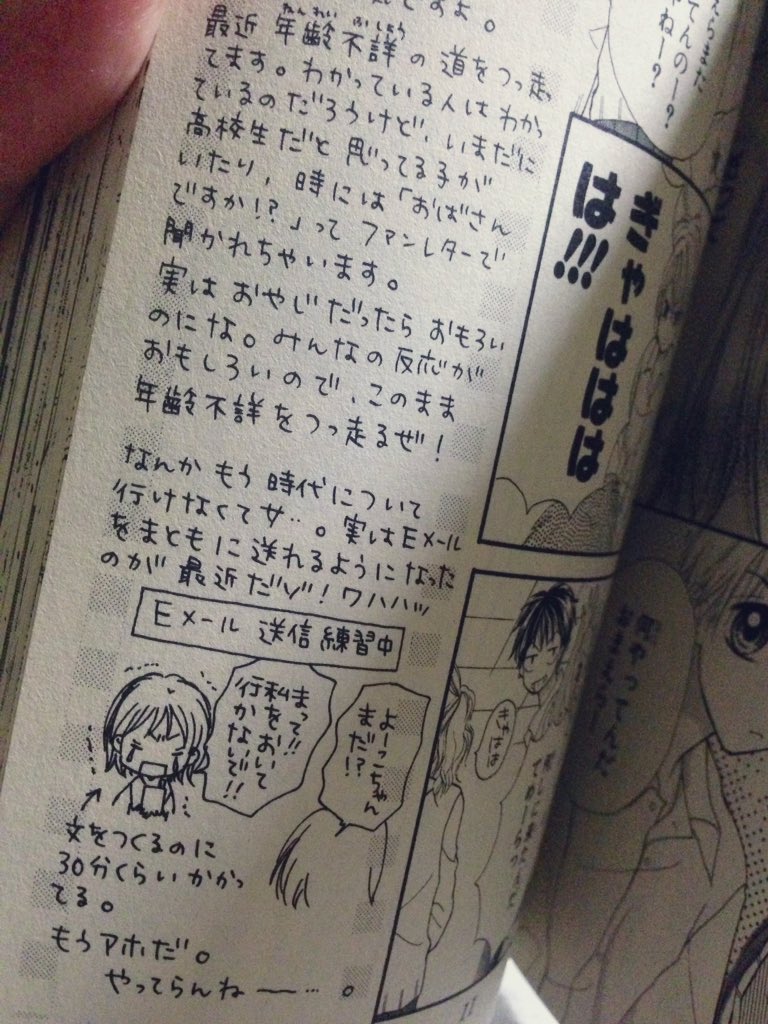 ですよ。
ねんれい ふしょう
最近 年齢不詳の 道をつっ走っ
てます。わかっている人は わかっ
ているのだろうけど、いまだに
高校生だと 思ってる子が
いたり、時には「おばさん
ですか!?」って ファンレターで
聞かれちゃいます。
実は おやじだったら おもろい
のにな。みんなの反応が
おもしろいので、このまま
年齢不詳をつっ走るぜ!
なんか もう 時代について
行けなくてサ…。実はEメール
をまともに送れるようになった
のが 最近だゾ!ワハハッ
Eメール 送信 練習中
よーこちゃん
まだ!?
まって!!
私をおいて
行かないで!!
文をつくるのに
30分くらいかかっ
てる。
もうアホだ。
やってらんねー…。
てんのー?
ねー?
ぎゃははは
は!!!
きゃはは
何やってんだ、
おまえらー
11